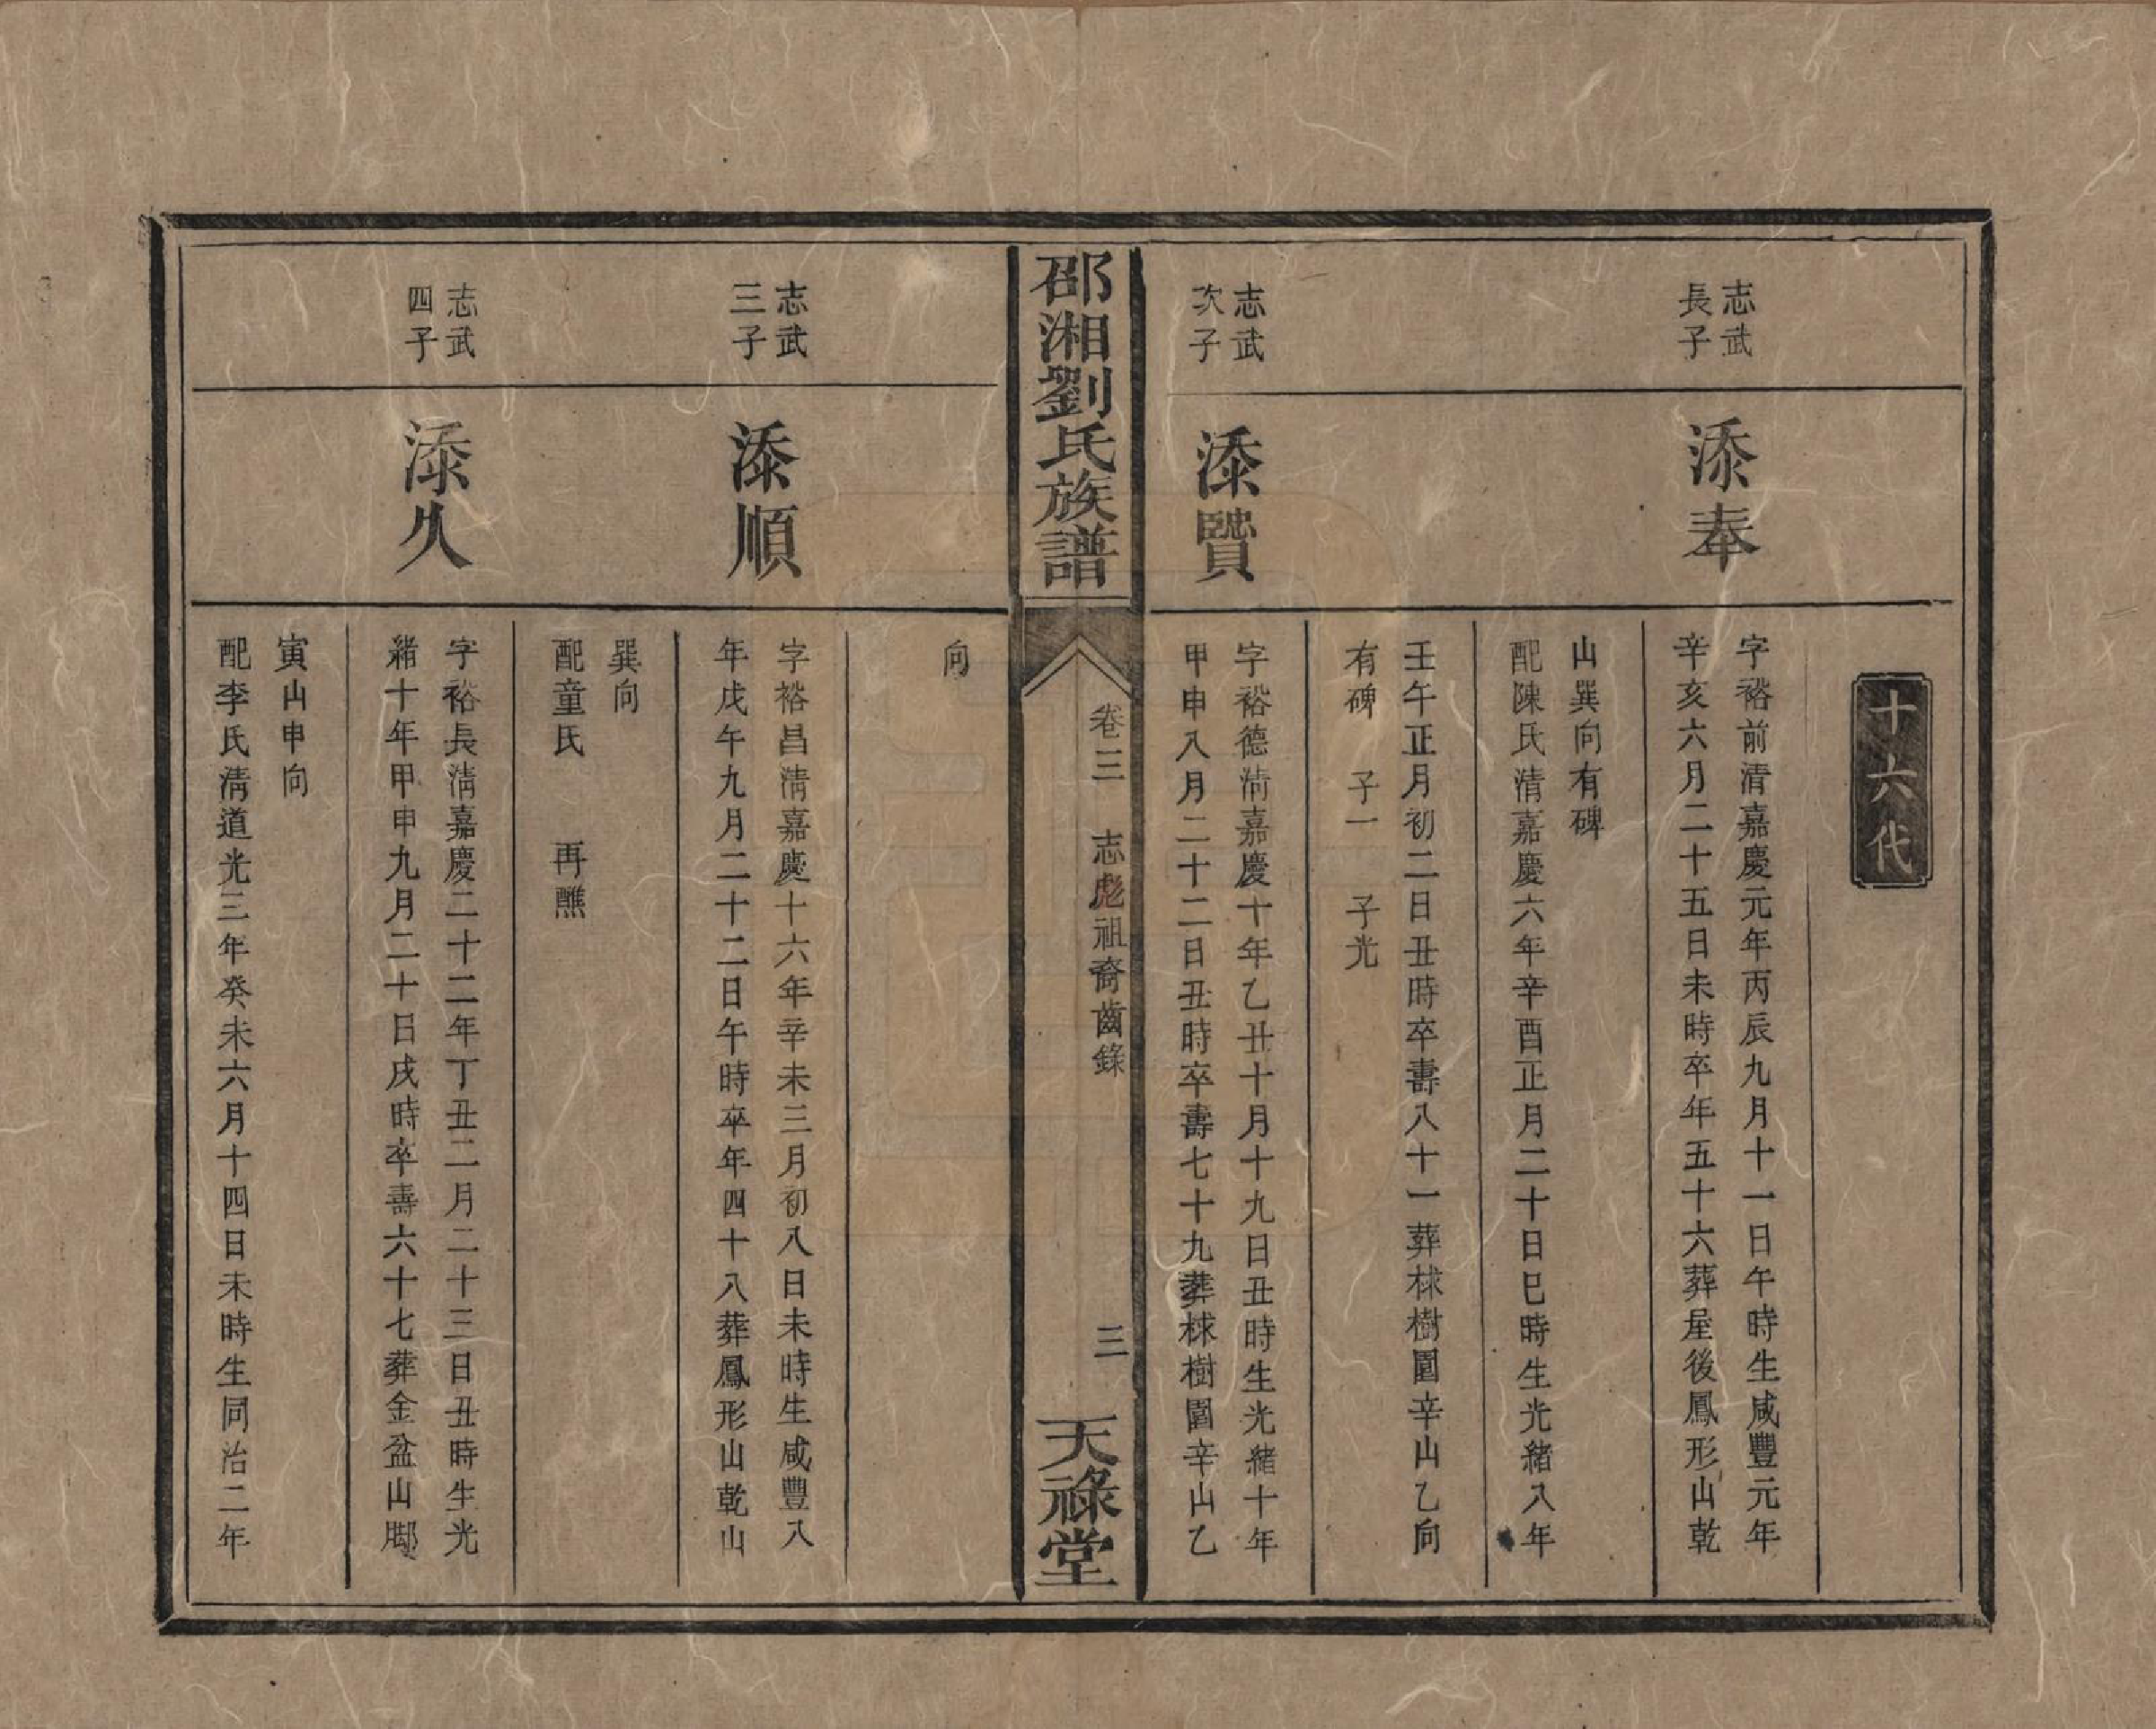 十六代
志武
長子
添奉
字裕前清嘉慶元年丙辰九月十一日午時生咸豐元年
辛亥六月二十五日未時卒年五十六葬屋後鳳形山乾
山巽向有碑
配陳氏清嘉慶六年辛酉正月二十日巳時生光緒八年
壬午正月初二日丑時卒壽八十一葬梂樹園辛山乙向
有碑 子一 子光
志武
次子
添賢
字裕德清嘉慶十年乙丑十月十九日丑時生光緒十年
甲申八月二十二日丑時卒壽七十九葬梂樹園辛山乙
邵湘劉氏族譜
卷三 志彪祖裔齒錄
三
天祿堂
向
志武
三子
添順
字裕昌清嘉慶十六年辛未三月初八日未時生咸豐八
年戊午九月二十二日午時卒年四十八葬鳳形山乾山
巽向
配童氏 再醮
志武
四子
添久
字裕長清嘉慶二十二年丁丑二月二十三日丑時生光
緒十年甲申九月二十日戌時卒壽六十七葬金盆山腳
寅山申向
配李氏清道光三年癸未六月十四日未時生同治二年